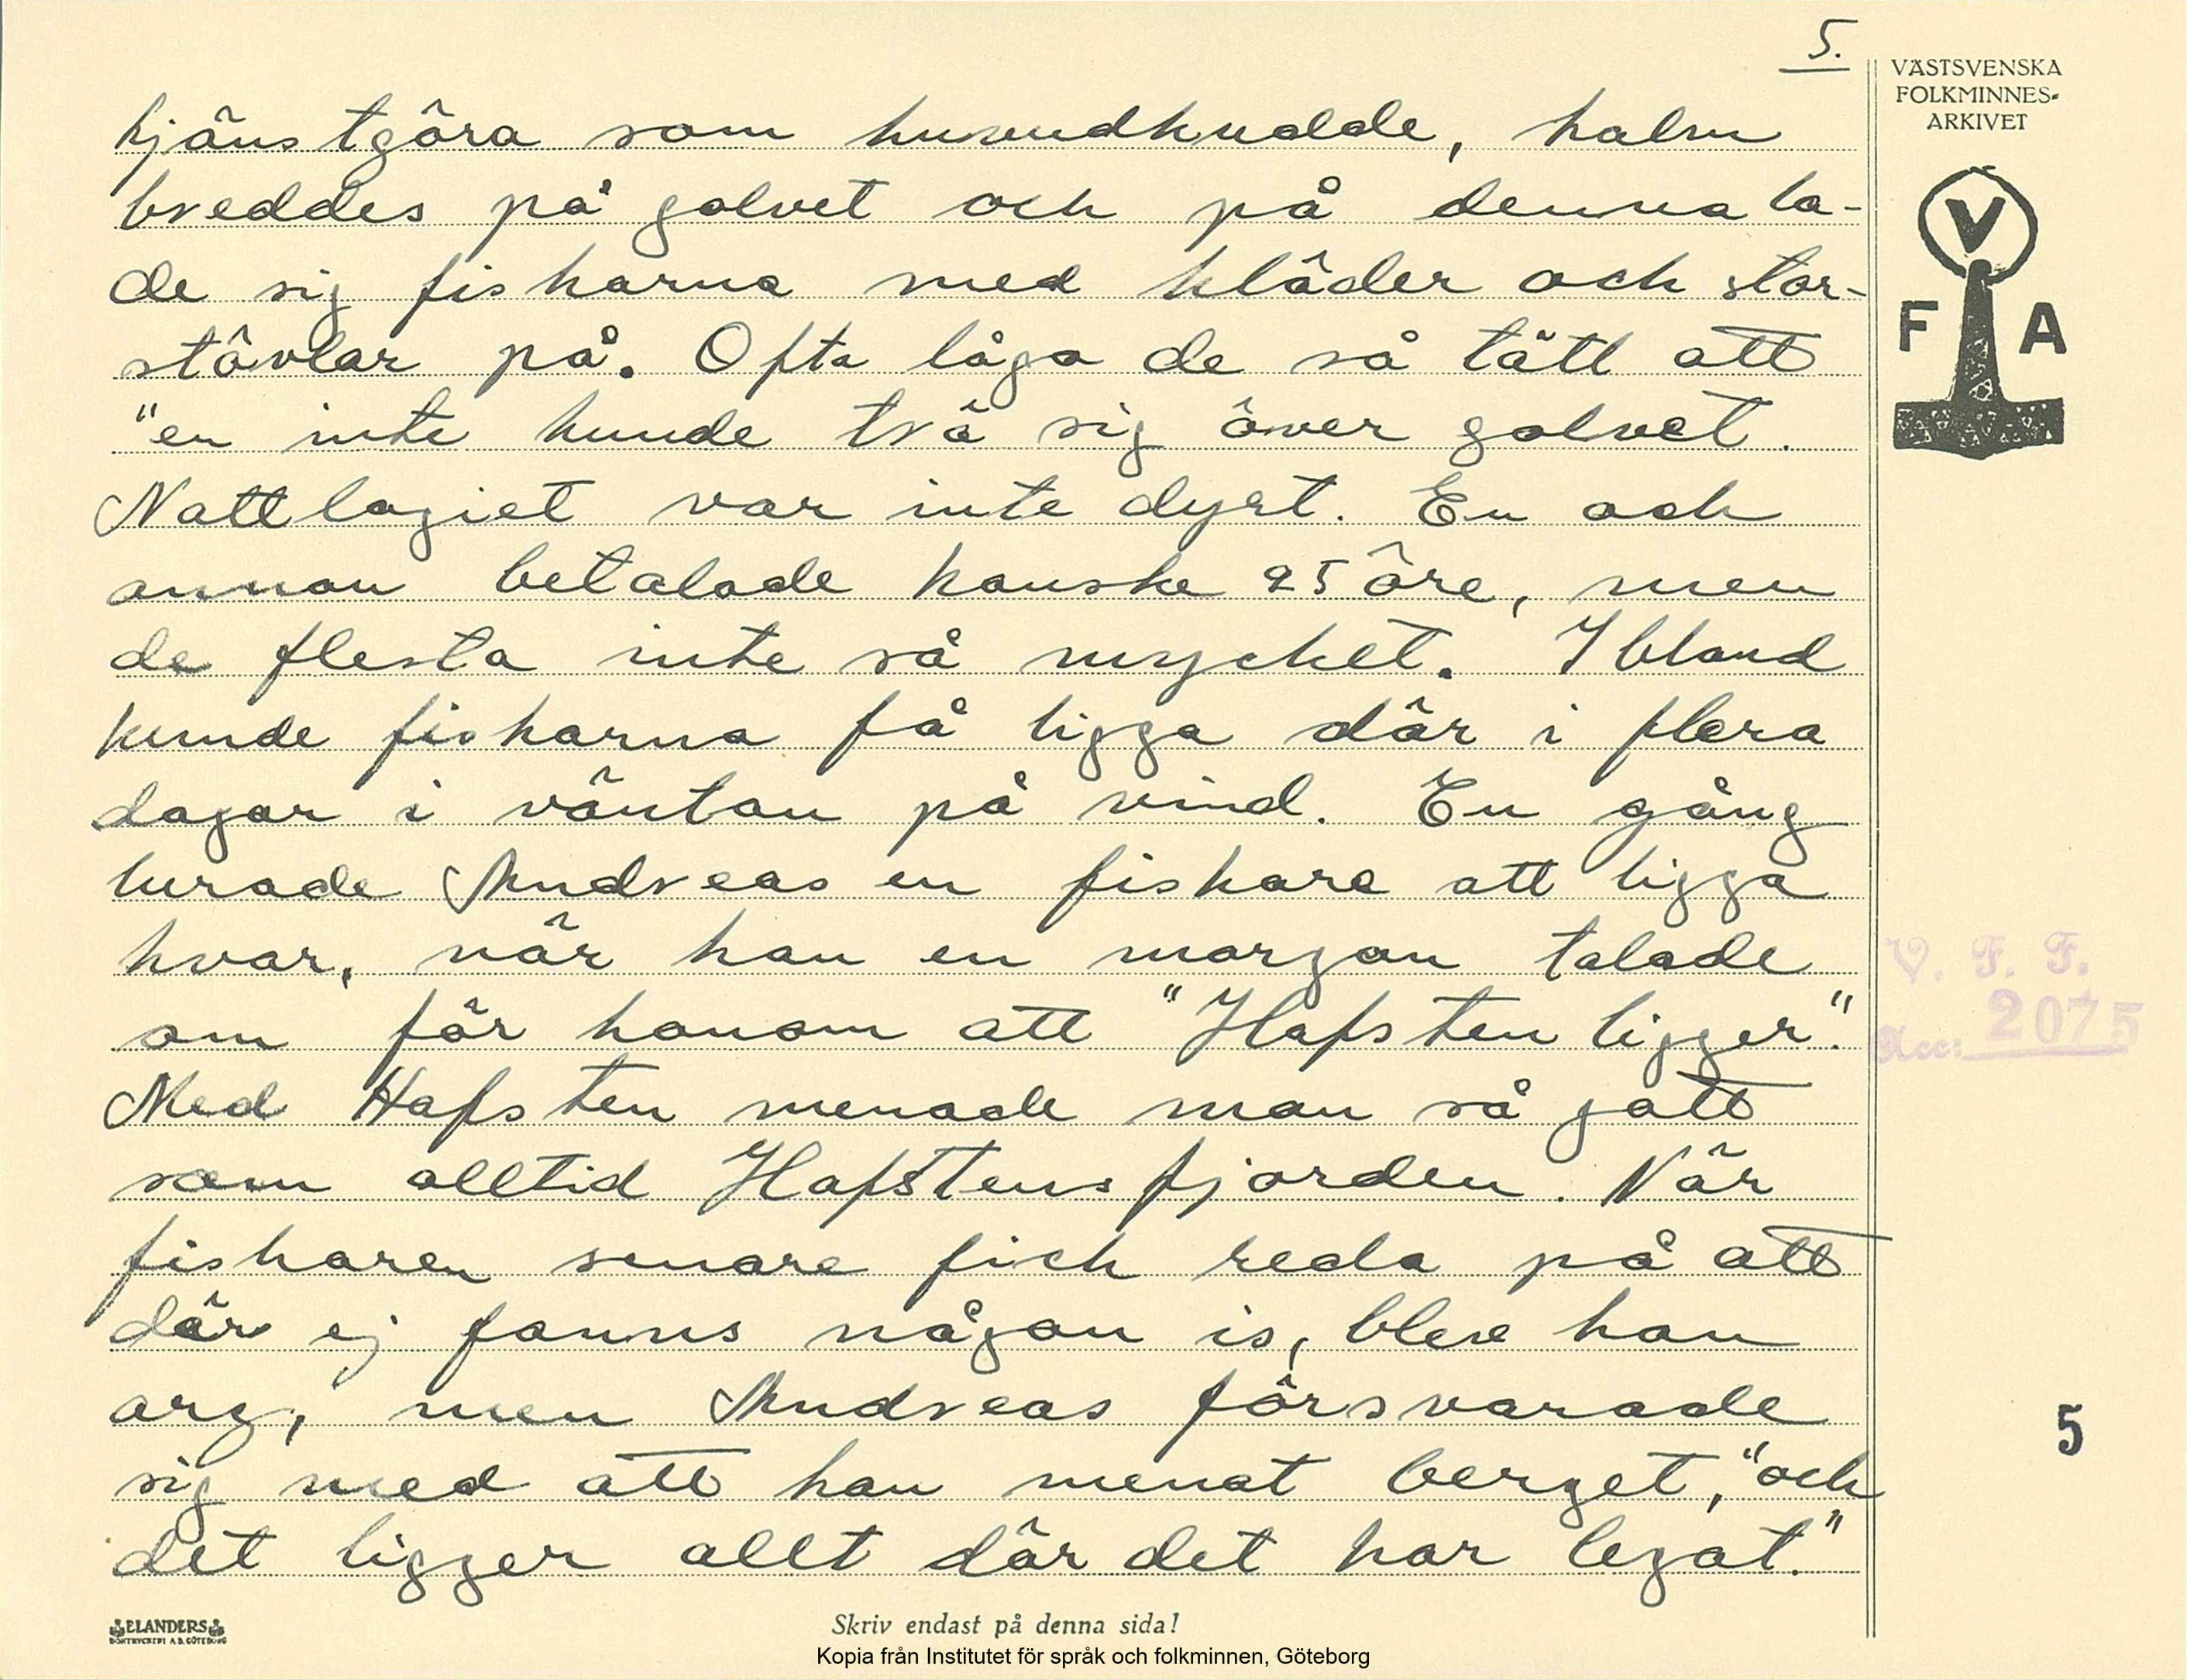 5.
VÄSTSVENSKA
FOLKMINNES-
ARKIVET
V
F A
tjänstgöra som huvudkudde, halm
breddes på golvet och på denna la-
de sig fiskarna med kläder och stor-
stövlar på. Ofta låga de så tätt att
"en inte kunde trå sig över golvet.
Nattlogiet var inte dyrt. En och
annan betalade kanske 25 öre, men
de flesta inte så mycket. Ibland
kunde fiskarna få ligga där i flera
dagar i väntan på vind. En gång
lurade Andreas en fiskare att ligga
kvar, när han en morgon talade
om för honom att "Hafsten ligger".
Med Hafsten menade man så gott
som alltid Hafstensfjorden. När
fiskaren senare fick reda på att
där ej fanns någon is, blev han
arg, men Andreas försvarade
sig med att han menat berget, "och
det ligger allt där det har legat."
V. F. F.
Acc: 2075
5
ELANDERS
BOKTRYCKERI A.B. GÖTEBORG
Skriv endast på denna sida!
Kopia från Institutet för språk och folkminnen, Göteborg